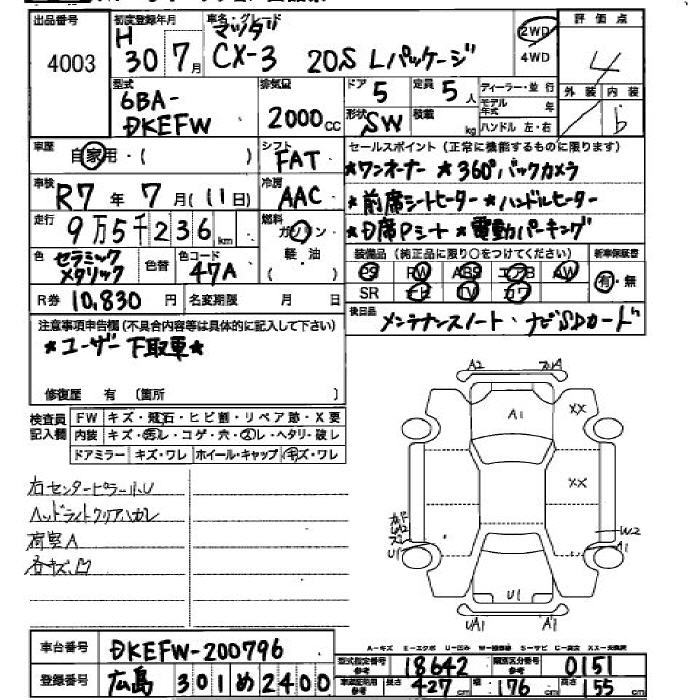 出品番号 4003
初度登録年月 H 30 7月
車名・グレード マツダ CX-3 20S Lパッケージ
2WD 4WD
評価点 4
外装 内装 b
型式 6BA-DKEFW
排気量 2000cc
ドア 5 定員 5人
形状 SW 積載 kg
ディーラー・並行
モデル年式 年
ハンドル 左・右
車歴 自家用・( )
シフト FAT
車検 R7年7月(11日)
冷房 AAC
走行 9万5千236km
燃料 ガソリン 軽油 ( )
色 セラミックメタリック 色替 色コード 47A
R券 10,830円 名変期限 月 日
セールスポイント(正常に機能するものに限ります)
★ワンオーナー ★360°バックカメラ
★前席シートヒーター ★ハンドルヒーター
★D席Pシート ★電動パーキング
装備品(純正品に限り○をつけてください) 新車保証書
PS PW ABS エアB AW 有・無
SR ナビ TV カワ
後日品 メンテナンスノート・ナビSDカード
注意事項申告欄(不具合内容等は具体的に記入して下さい)
★ユーザー下取車★
修復歴 有 〔箇所 〕
検査員記入欄
FW キズ・飛石・ヒビ割・リペア跡・X要
内装 キズ・汚レ・コゲ・穴・スレ・ヘタリ・破レ
ドアミラー キズ・ワレ ホイール・キャップ キズ・ワレ
右センターピラー小U
ヘッドライトクリアハガレ
各キズ、凹
A2
A1
XX
XX
W2
A1
U1
U1
UA1
A1
車台番号 DKEFW-200796
登録番号 広島 301 め 2400
型式指定番号 18642 類別区分番号 0151
長さ 427cm 幅 176cm 高さ 155cm